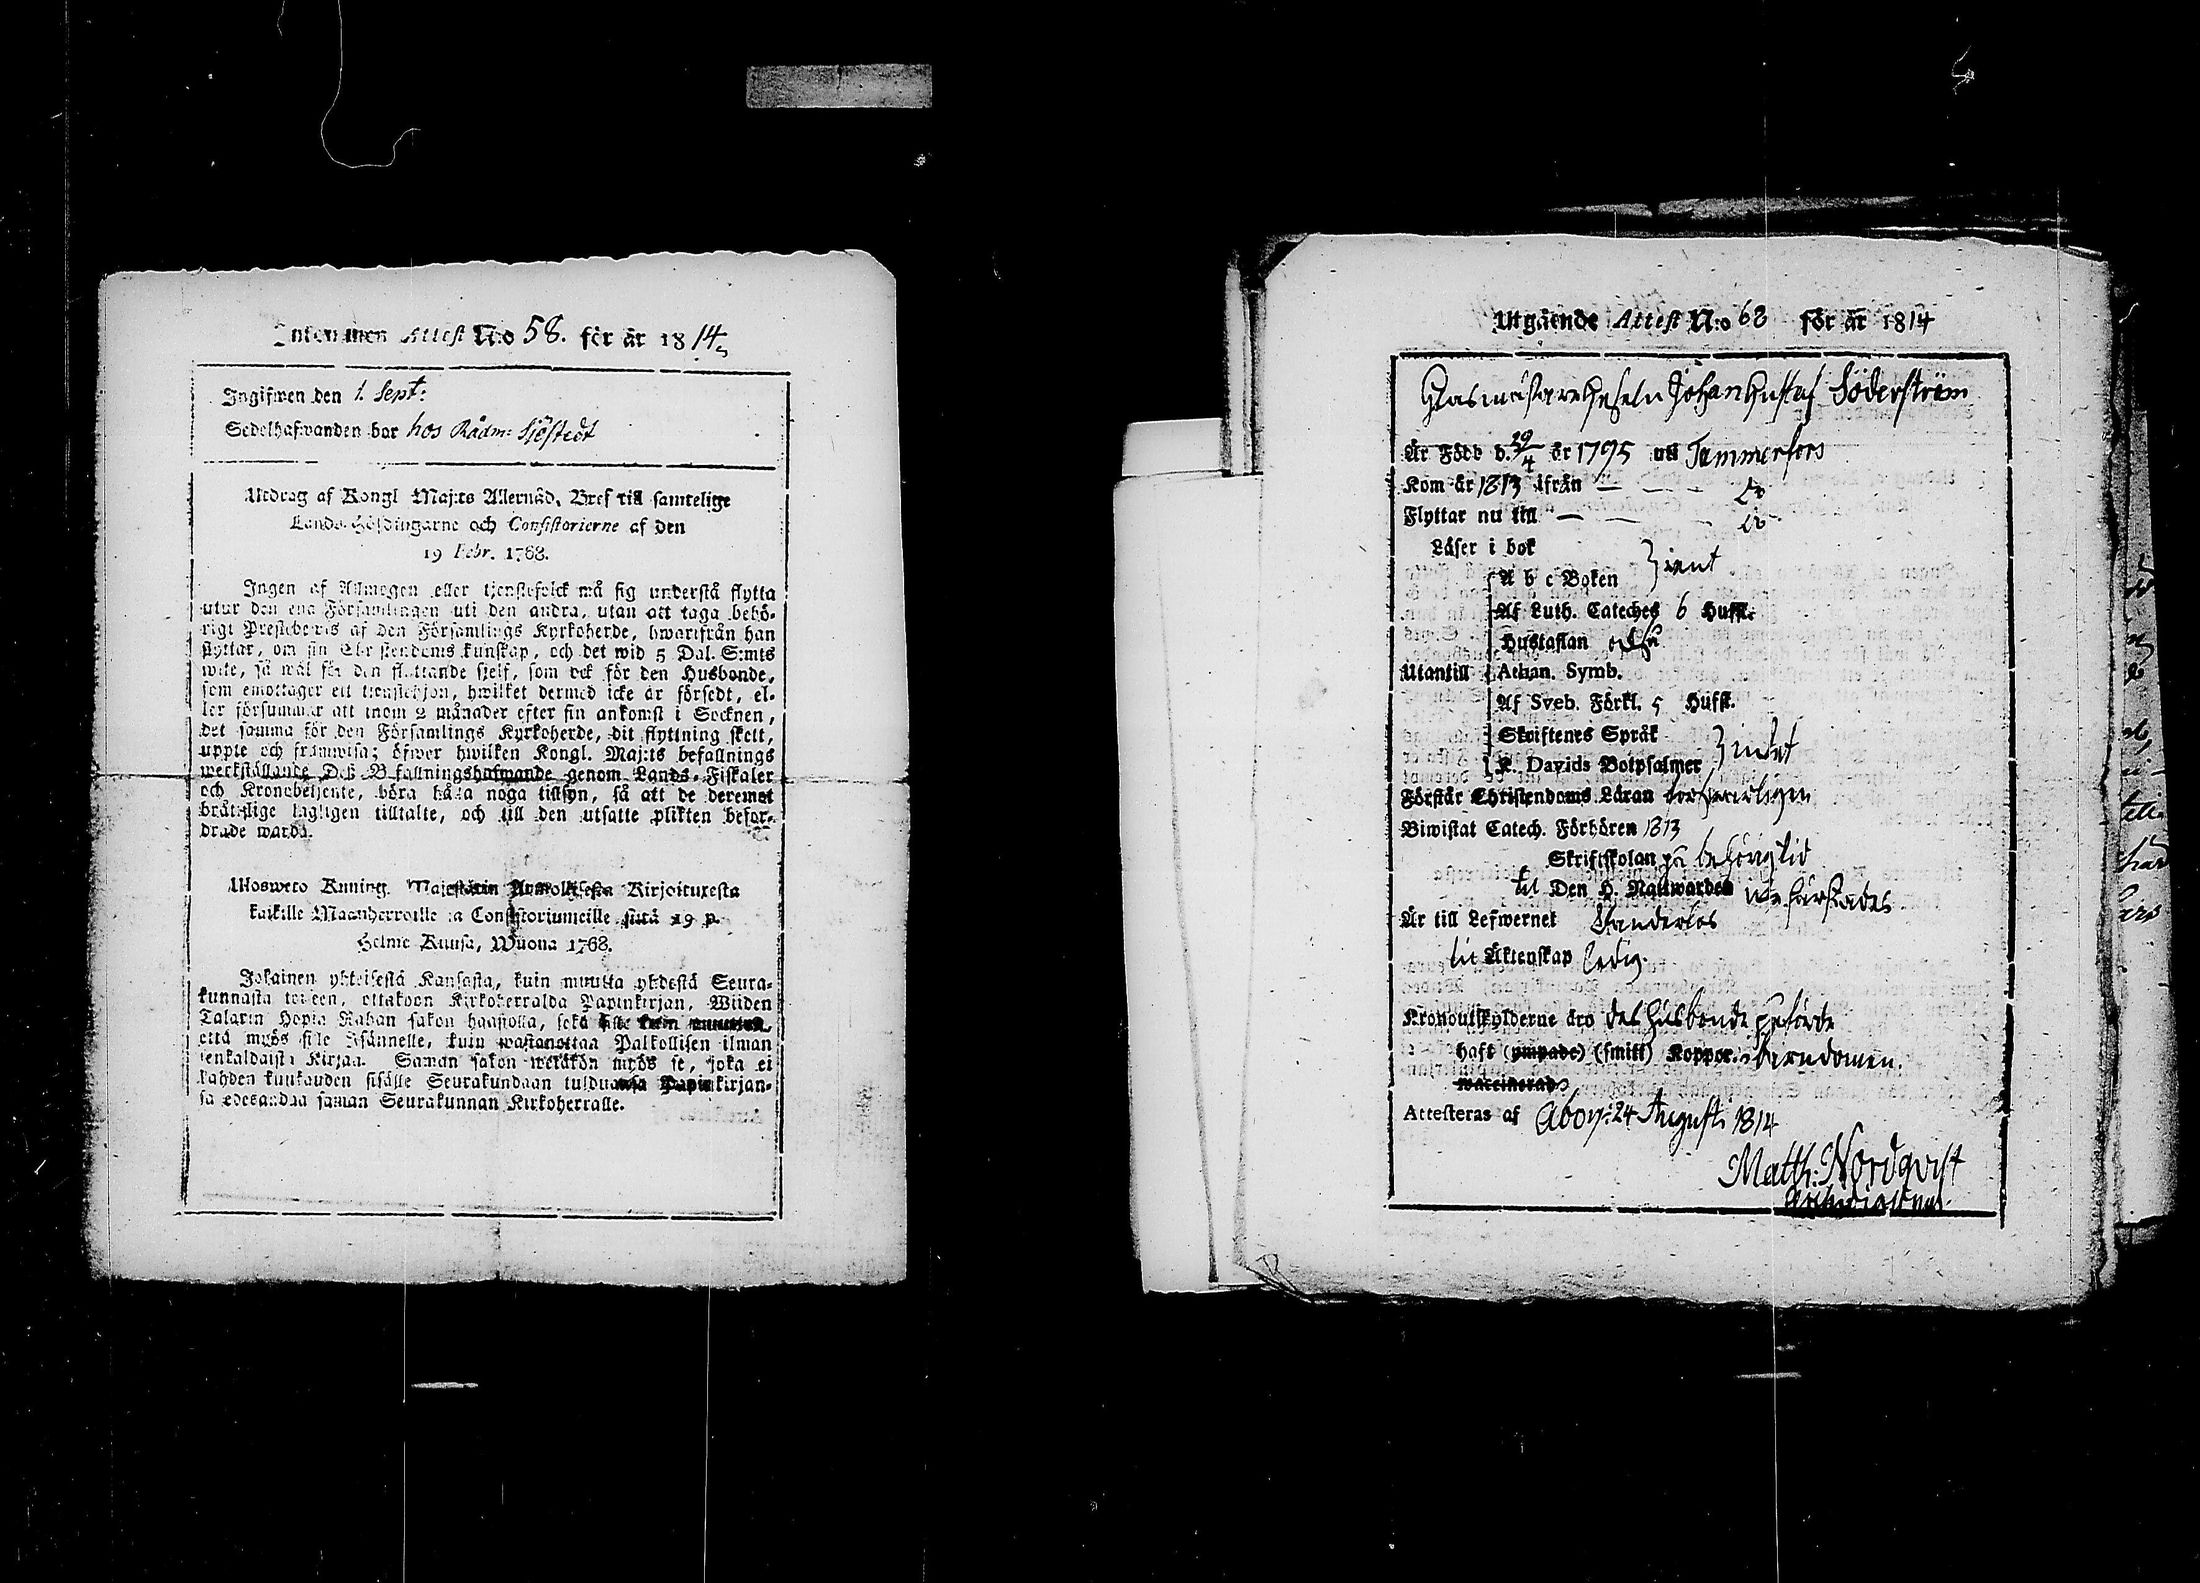 Inkommen Attest N:o 58. för år 1814
Ingifwen den 1. Sept:
Sedelhafwanden bor hos Rådm: Sjöstedt
Utdrag af Kongl Maj:ts Allernåd. Bref till samtelige
Lands-Höfdingarne och Consistorierne af den
19 Febr. 1768.
Ingen af Allmogen eller tjenstefolck må sig understå flytta
utur den ena Församlingen uti den andra, utan att taga behö-
rigt Prestebewis af den Församlings Kyrkoherde, hwarifrån han
flyttar, om sin Christendoms kunskap, och det wid 5 Dal. S:mts
wite, så wäl för den flyttande sjelf, som ock för den Husbonde,
som emottager ett tjenstehjon, hwilket dermed icke är försedt, el-
ler försummar att inom 2 månader efter sin ankomst i Socknen,
det samma för den Församlings Kyrkoherde, dit flyttning skett,
uppte och framwisa; öfwer hwilken Kongl. Maj:ts befallnings
werkställande Deß Befallningshafwande genom Lands-Fiskaler
och Kronobetjente, böra hålla noga tillsyn, så att de deremot
brätslige lagligen tilltalte, och till den utsatte plikten befor-
drade warda.
Ulosweto Kuning. Majestätin Armollisesta Kirjoituxesta
kaikille Maanherroille ja Consistoriumeille siitä 19 p.
Helme Kuusa, Wuona 1768.
Jokainen yhteisestä Kansasta, kuin muutta yhdestä Seura-
kunnasta toiseen, ottakoon Kirkoherralda Papinkirjan, Wiiden
Talarin Hopia Rahan sakon haastolla, sekä itse kuin muuttaa,
että myös sille Isännelle, kuin wastanottaa Palkollisen ilman
senkaldaista Kirjaa. Saman sakon wetäkön myös se, joka ei
kahden kuukauden sisälle Seurakundaan tulduansa Papinkirjan-
sa edesandaa saman Seurakunnan Kirkoherralle.
Utgående Attest N:o 68 för år 1814
Glasmästare Geseln Johan Gustaf Söderström
Är Född d. 29/4 år 1795 uti Tammerfors
Kom år 1813 ifrån — — — Do
Flyttar nu till — — — Do
Läser i bok
A b c Boken } rent
Af Luth. Cateches 6 Hufst.
Hustaflan
Utantill Athan. Symb.
Af Sveb. Förkl. 5 Hufst.
Skriftenes Språk
K. Davids Botpsalmer } intet
Förstår Christendoms Läran försvarligen
Biwistat Catech. Förhören 1813
Skriftskolan på behörig tid
til Den H. Nattwarden
Är till Lefwernet klanderlös
til Äktenskap ledig.
Kronoutskylderne äro des Husbonde påförde
haft (ympade) (smitt) Koppor. i barndomen.
waccinerad
Attesteras af Åbo d. 24 Augusti 1814
Matth: Nordqvist